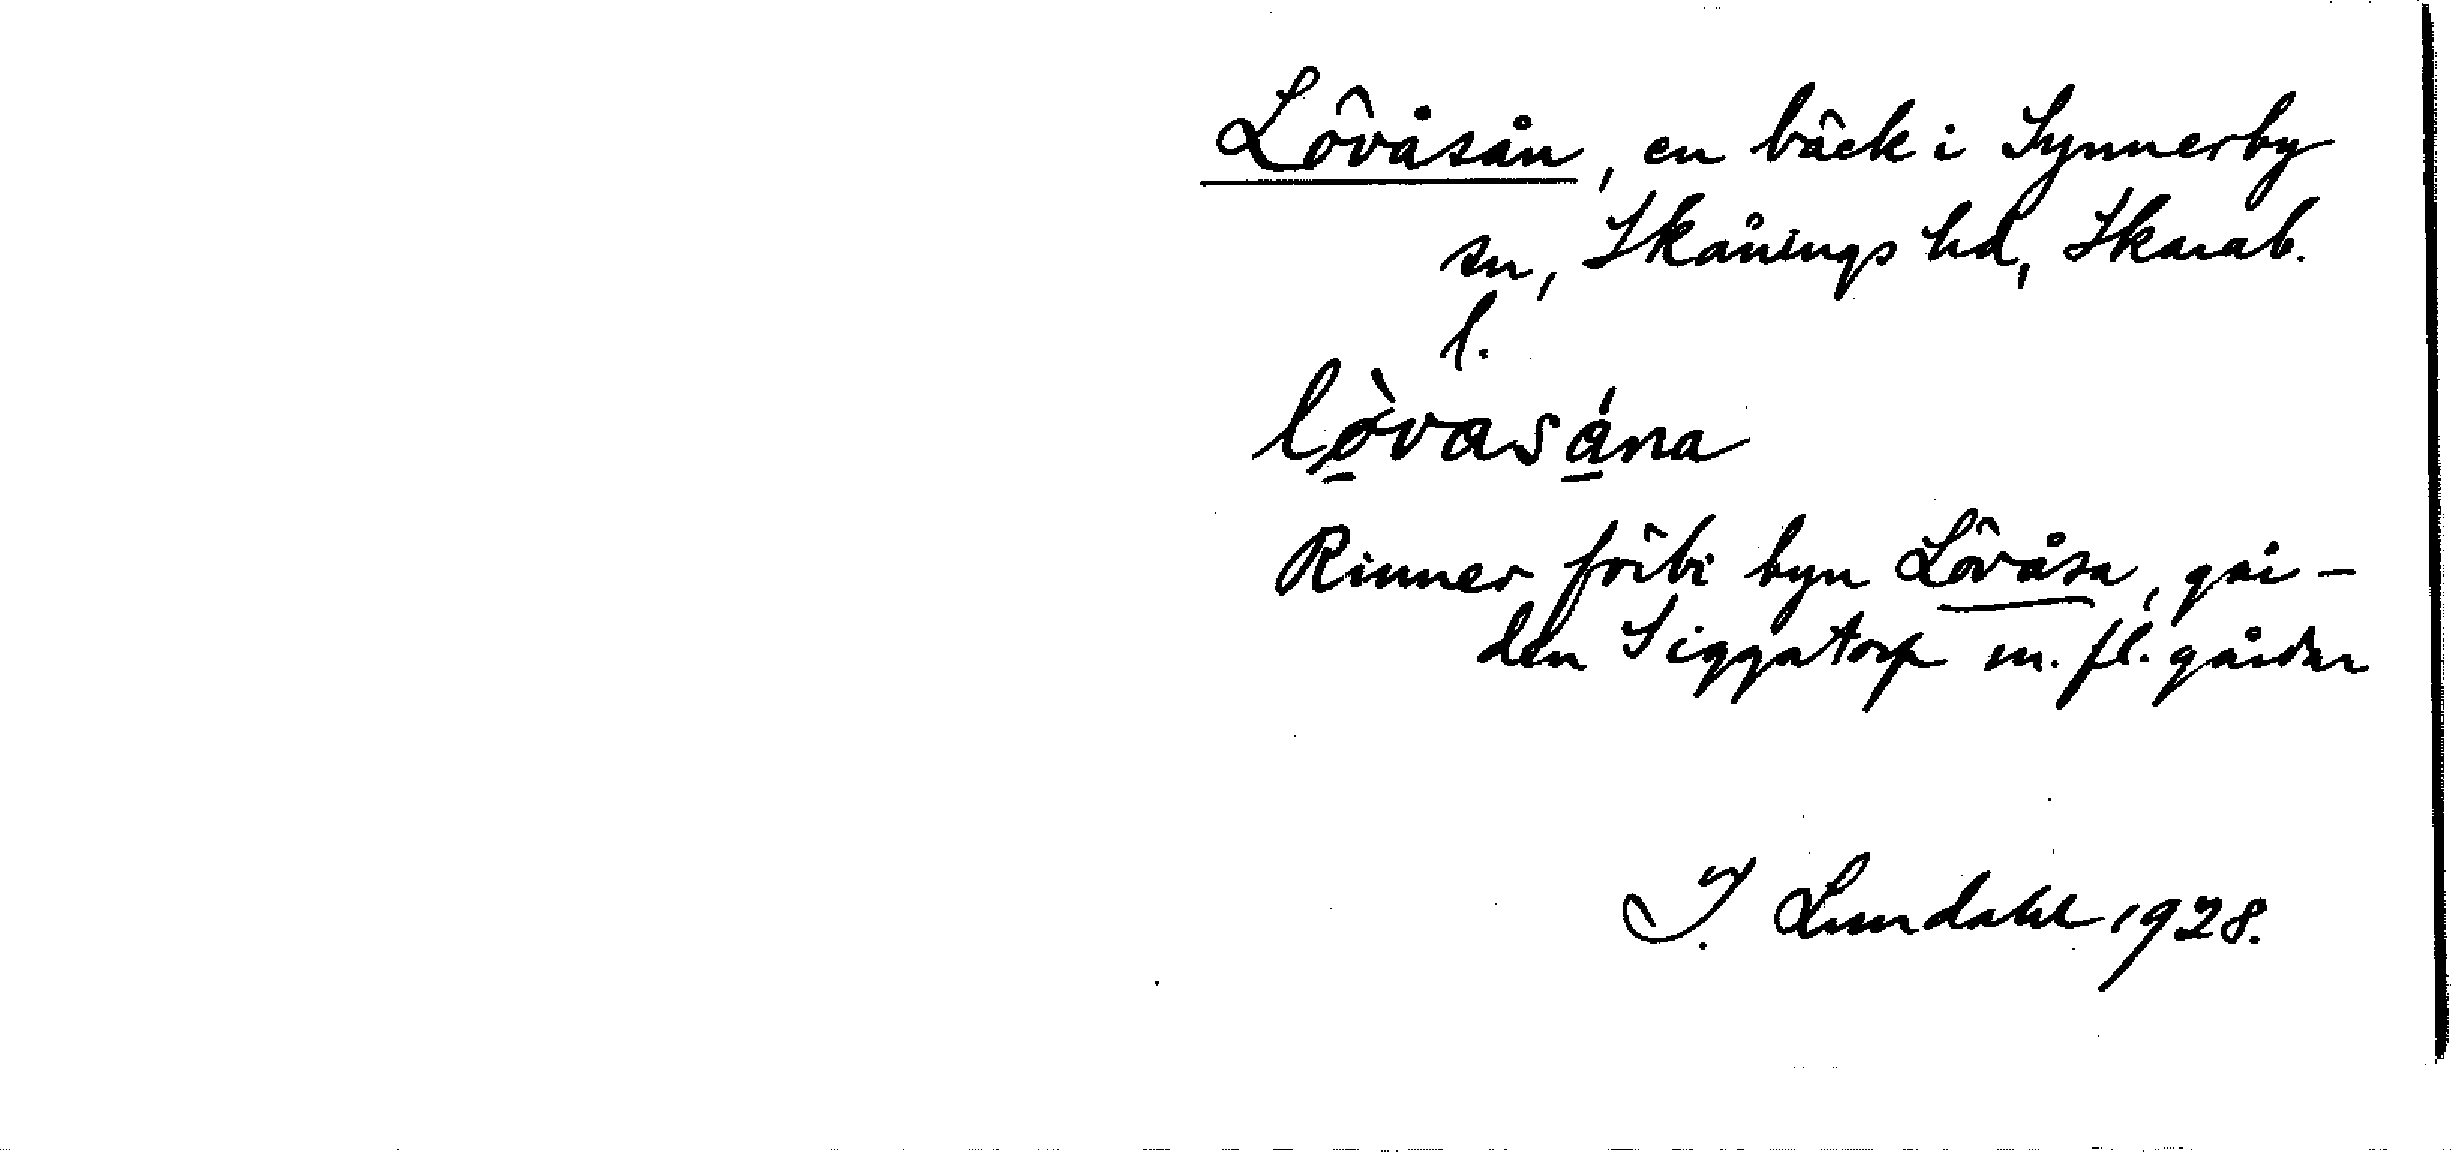 Lövåsån, en bäck i Synnerby
sn, Skånings hd, Skarab.
l.
lø̀vasána
Rinner förbi byn Lövåsa, går-
den Siggatorp m. fl. gårdar
I. Lundahl 1928.